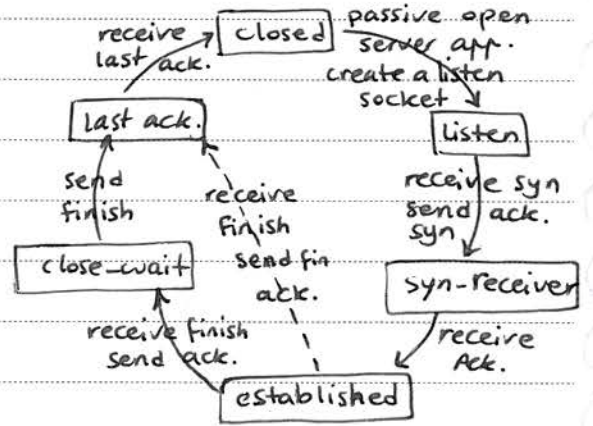 closed
passive open
server app.
create a listen
socket
Listen
receive syn
send ack.
syn
syn-receiver
receive
Ack.
established
receive finish
send ack.
close_wait
send
finish
last ack.
receive
last ack.
receive
finish
send fin
ack.